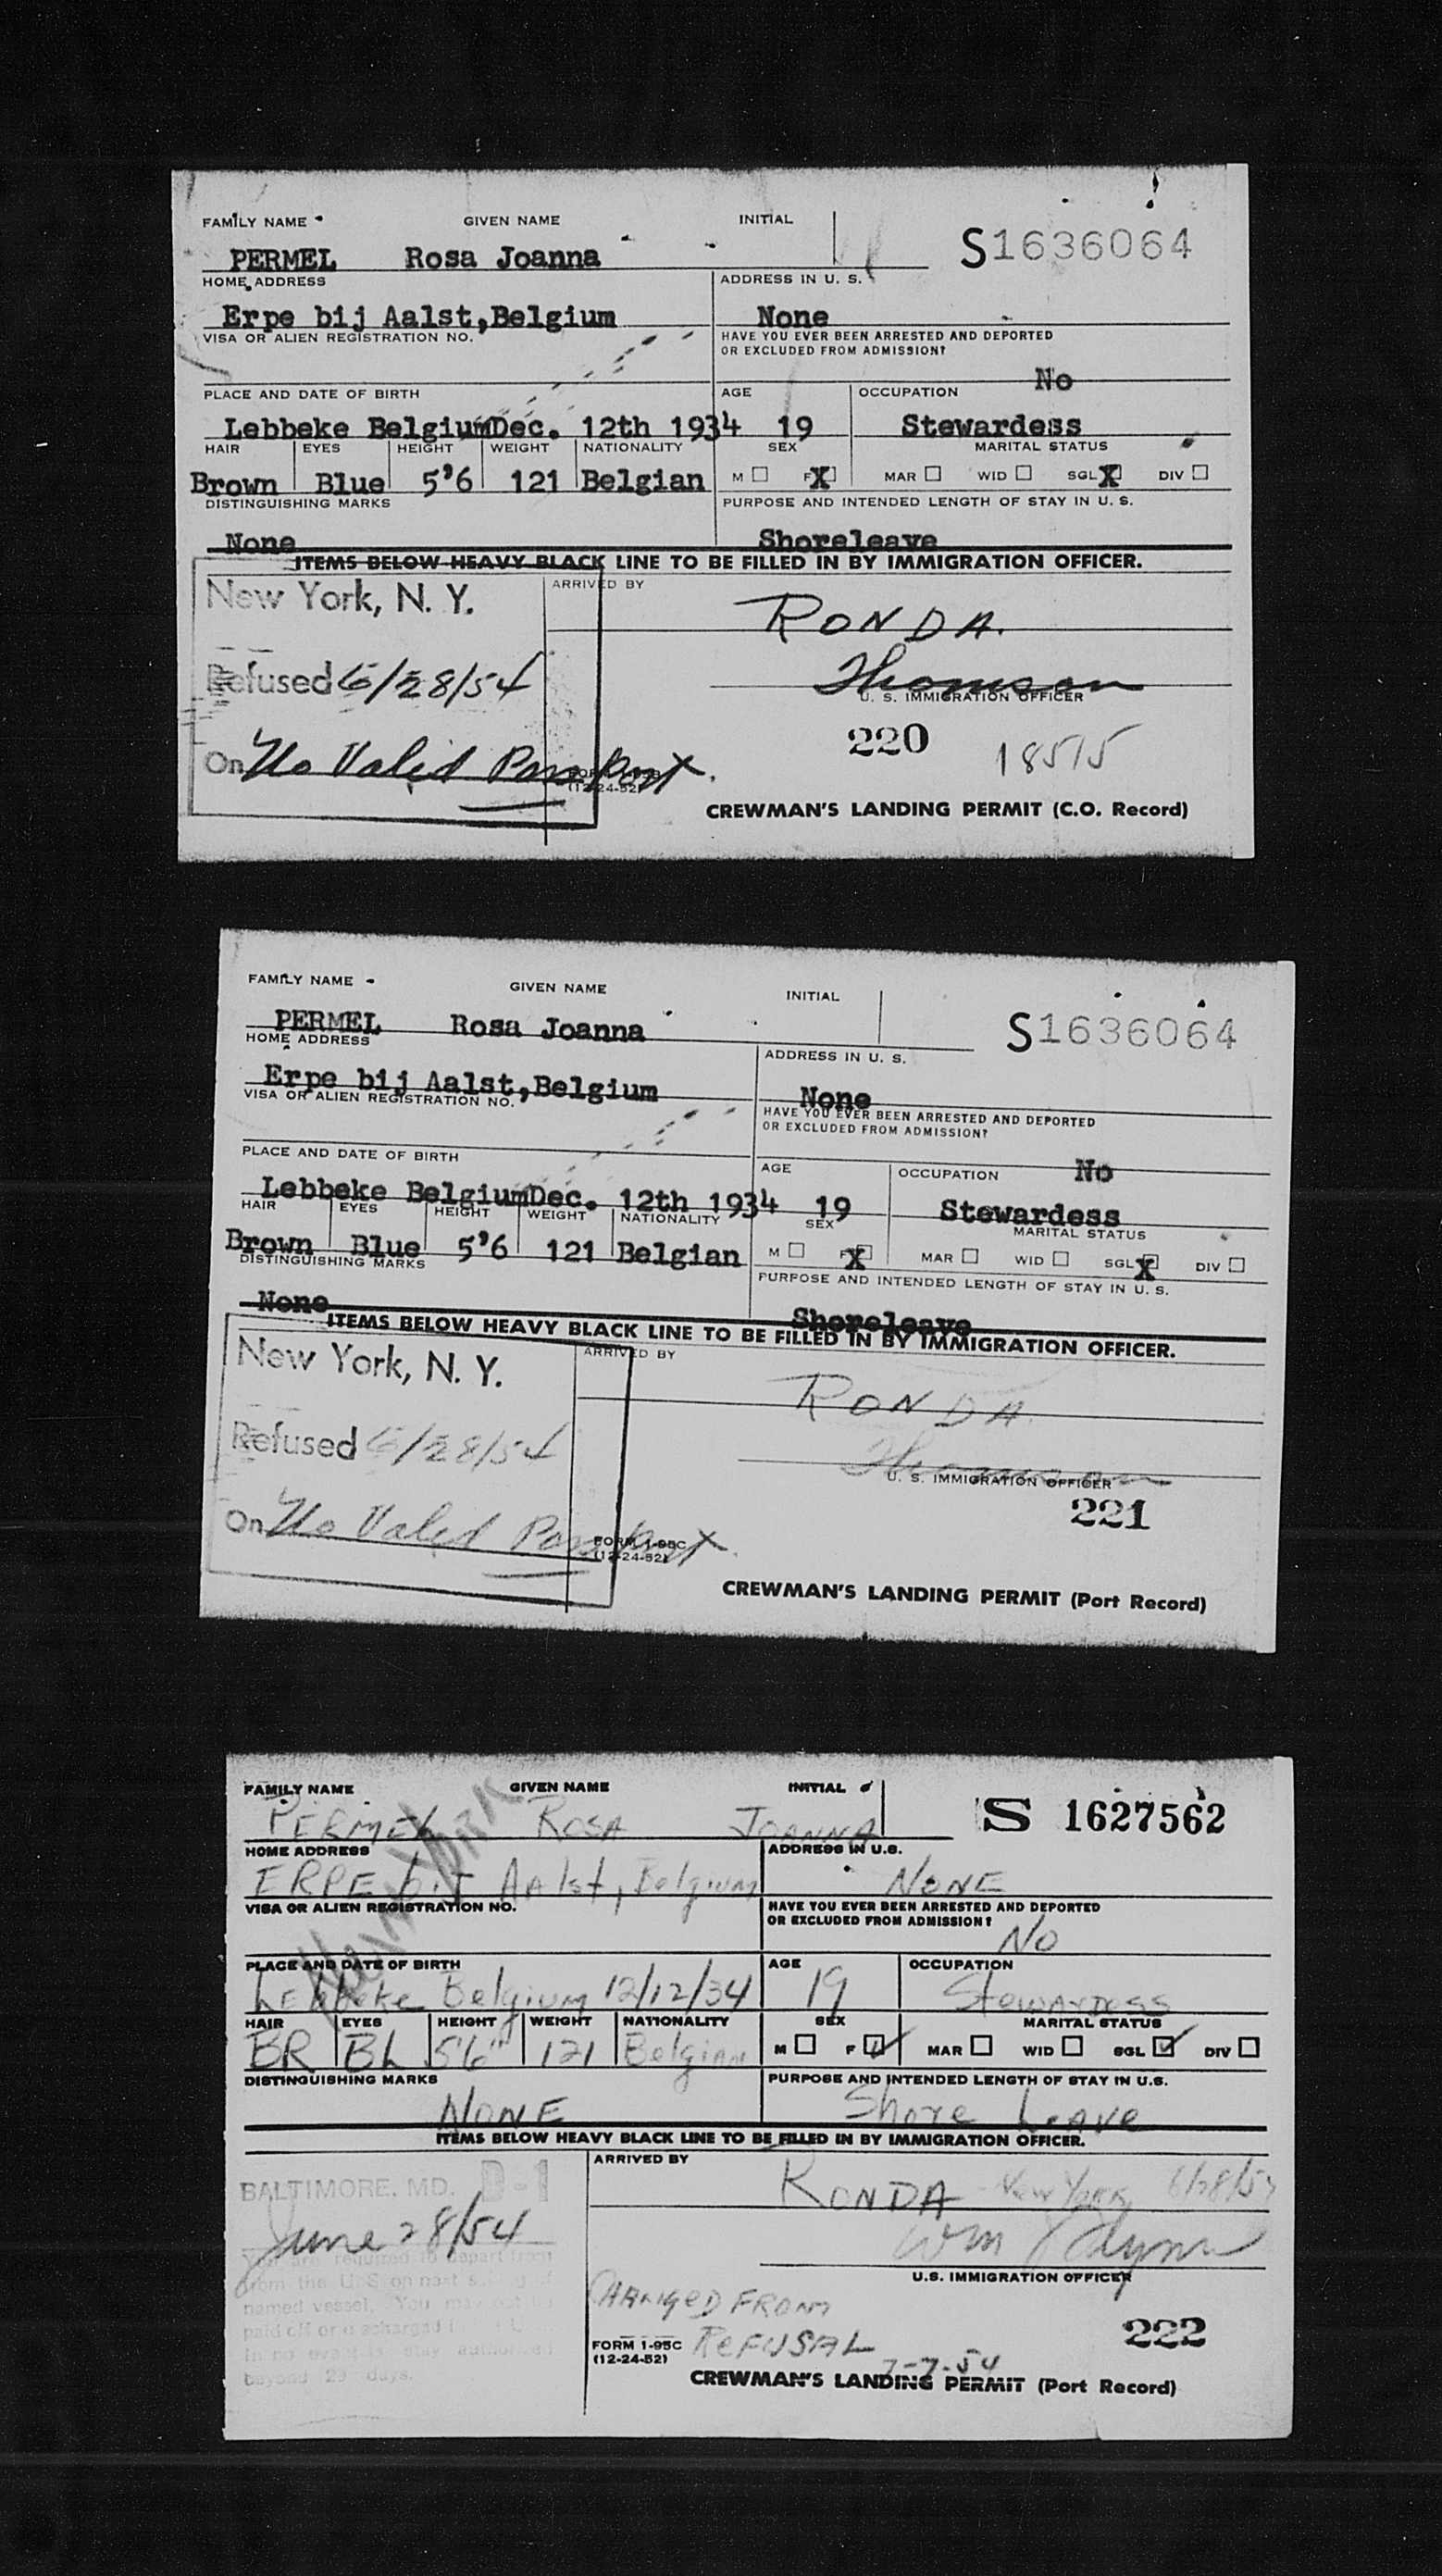 FAMILY NAME GIVEN NAME INITIAL
S1636064
PERMEL Rosa Joanna
HOME ADDRESS ADDRESS IN U. S.
Erpe bij Aalst,Belgium None
VISA OR ALIEN REGISTRATION NO. HAVE YOU EVER BEEN ARRESTED AND DEPORTED
OR EXCLUDED FROM ADMISSION?
No
PLACE AND DATE OF BIRTH AGE OCCUPATION
Lebbeke BelgiumDec. 12th 1934 19 Stewardess
HAIR EYES HEIGHT WEIGHT NATIONALITY SEX MARITAL STATUS
Brown Blue 5'6 121 Belgian M F X MAR WID SGL X DIV
DISTINGUISHING MARKS PURPOSE AND INTENDED LENGTH OF STAY IN U. S.
None Shoreleave
ITEMS BELOW HEAVY BLACK LINE TO BE FILLED IN BY IMMIGRATION OFFICER.
New York, N. Y. ARRIVED BY
RONDA.
Refused 6/28/54 Thomson
U. S. IMMIGRATION OFFICER
220 18515
On No Valid Passport.
(12-24-52)
CREWMAN'S LANDING PERMIT (C.O. Record)
FAMILY NAME GIVEN NAME INITIAL
S1636064
PERMEL Rosa Joanna
HOME ADDRESS ADDRESS IN U. S.
Erpe bij Aalst,Belgium None
VISA OR ALIEN REGISTRATION NO. HAVE YOU EVER BEEN ARRESTED AND DEPORTED
OR EXCLUDED FROM ADMISSION?
No
PLACE AND DATE OF BIRTH AGE OCCUPATION
Lebbeke BelgiumDec. 12th 1934 19 Stewardess
HAIR EYES HEIGHT WEIGHT NATIONALITY SEX MARITAL STATUS
Brown Blue 5'6 121 Belgian M F X MAR WID SGL X DIV
DISTINGUISHING MARKS PURPOSE AND INTENDED LENGTH OF STAY IN U. S.
None Shoreleave
ITEMS BELOW HEAVY BLACK LINE TO BE FILLED IN BY IMMIGRATION OFFICER.
New York, N. Y. ARRIVED BY
RONDA.
Refused 6/28/54 Thomson
U. S. IMMIGRATION OFFICER
221
On No Valid Passport.
FORM I-95C
(12-24-52)
CREWMAN'S LANDING PERMIT (Port Record)
FAMILY NAME GIVEN NAME INITIAL
S 1627562
PERMEL ROSA JOANNA
New York
HOME ADDRESS ADDRESS IN U.S.
ERPE biJ AAlst, Belgium NONE
VISA OR ALIEN REGISTRATION NO. HAVE YOU EVER BEEN ARRESTED AND DEPORTED
OR EXCLUDED FROM ADMISSION?
No
PLACE AND DATE OF BIRTH AGE OCCUPATION
Lebbeke Belgium 12/12/34 19 Stewardess
HAIR EYES HEIGHT WEIGHT NATIONALITY SEX MARITAL STATUS
BR BL 5'6" 121 Belgian M F MAR WID SGL DIV
DISTINGUISHING MARKS PURPOSE AND INTENDED LENGTH OF STAY IN U.S.
NONE Shore Leave
ITEMS BELOW HEAVY BLACK LINE TO BE FILLED IN BY IMMIGRATION OFFICER.
ARRIVED BY
BALTIMORE, MD. D-1 RONDA New York 6/28/54
June 28/54
Wm
You are required to depart from
from the U.S. on next
named vessel. You may
paid off or discharged
In no event stay
beyond 29 days.
U.S. IMMIGRATION OFFICER
CHANGED FROM
222
FORM 1-95C REFUSAL
(12-24-52) 7-7-54
CREWMAN'S LANDING PERMIT (Port Record)